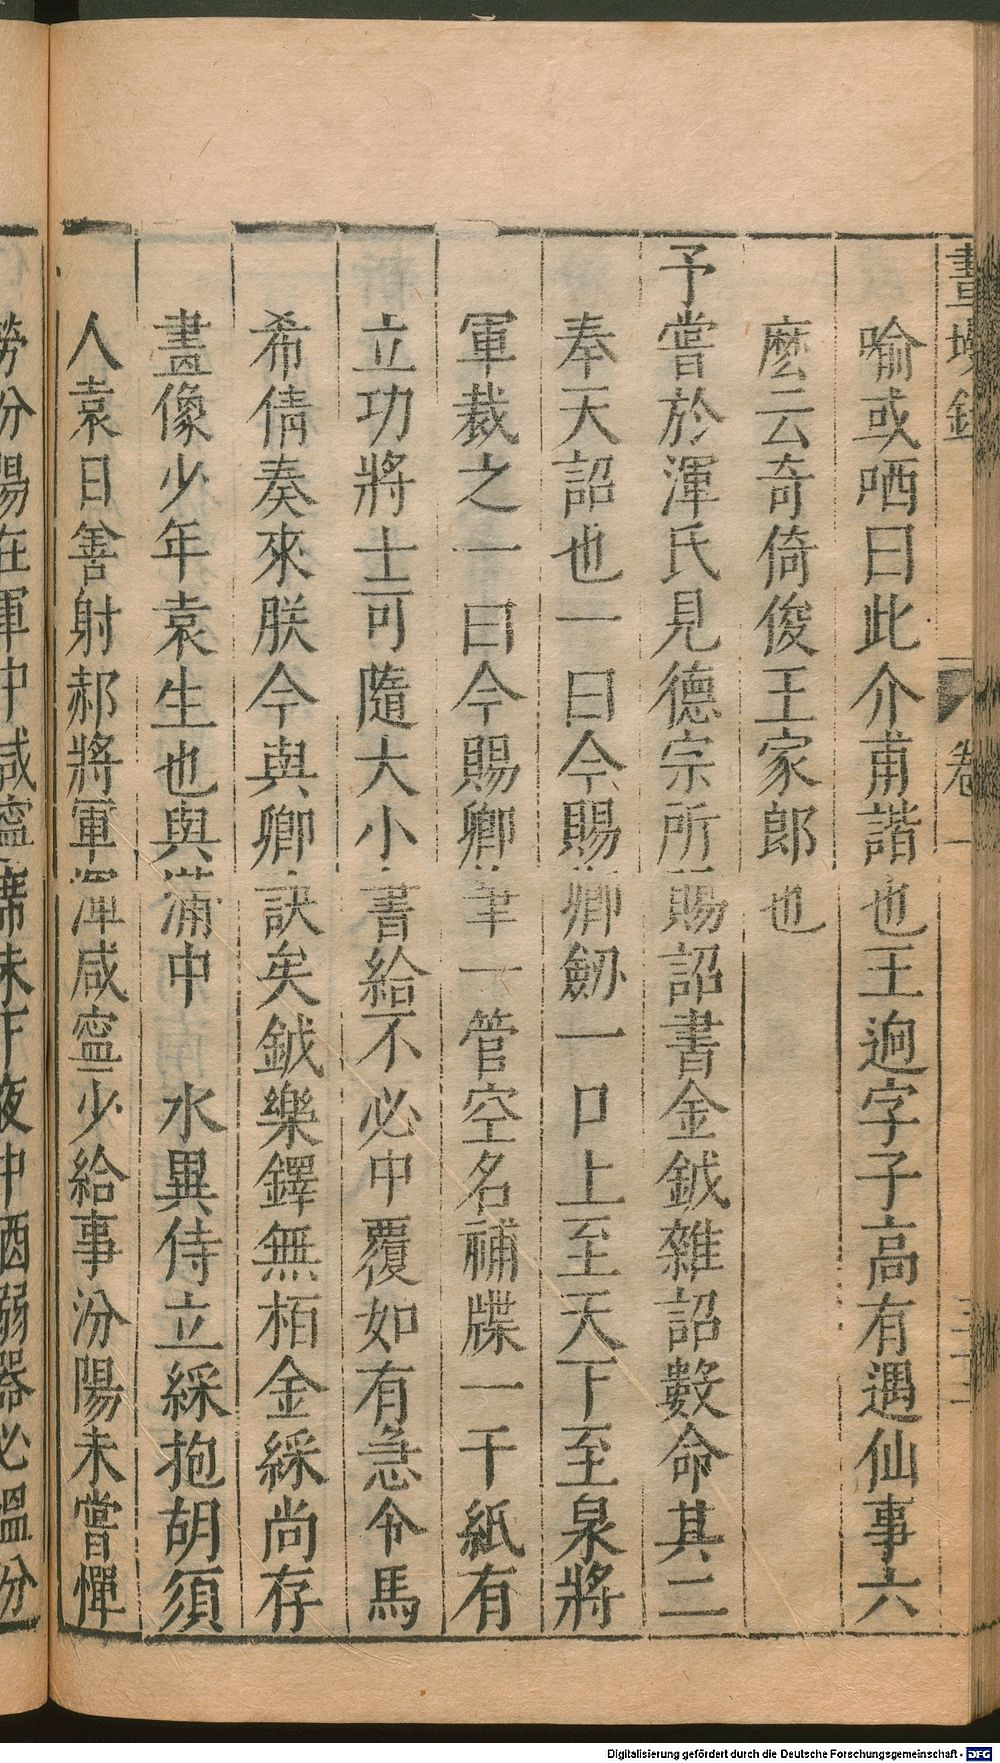 畫墁錄 卷一
喻或哂曰此介甫諧也王逈字子高有遇仙事六
麽云奇倚俊王家郎也
予嘗於渾氏見德宗所賜詔書金鉞雜詔數命其二
奉天詔也一曰今賜卿劒一口上至天下至泉將
軍裁之一曰今賜卿筆一管空名補牒一千紙有
立功將士可隨大小書給不必中覆如有急令馬
希倩奏來朕今與卿訣矣鉞欒鐸無栢金綵尚存
畫像少年袁生也與滿中 水異侍立綵抱胡須
人袁日善射郝將軍渾咸寧少給事汾陽未嘗憚
勞汾陽在軍中咸寧席未下夜中酒溺器必溫汾
Digitalisierung gefördert durch die Deutsche Forschungsgemeinschaft - DFG